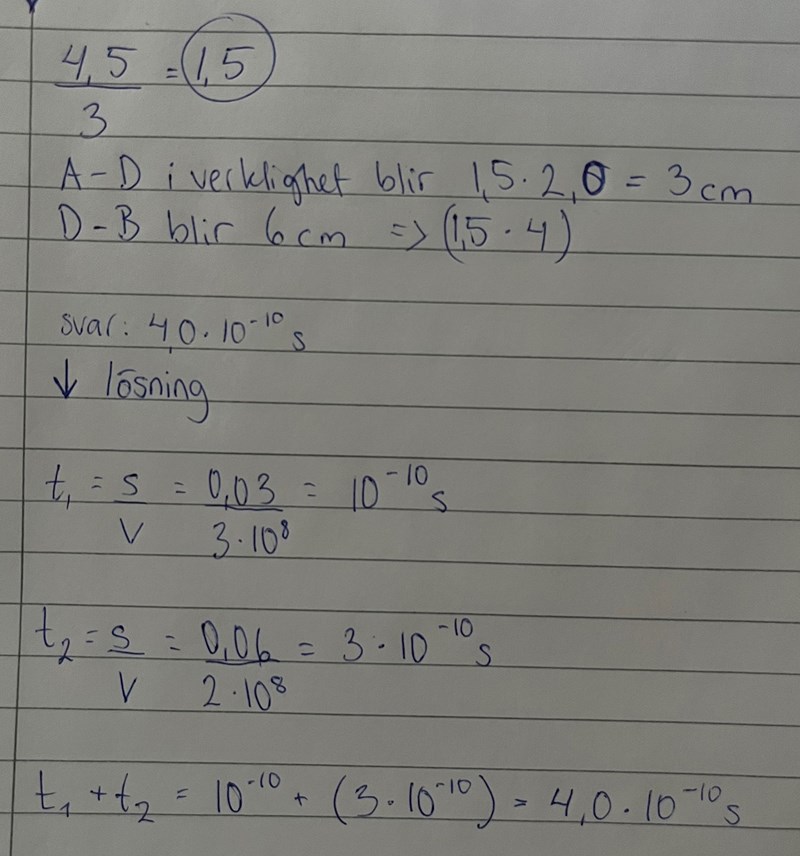 4,5 / 3 = 1,5
A-D i verklighet blir 1,5 · 2,0 = 3 cm
D-B blir 6 cm => (1,5 · 4)
svar: 4,0 · 10⁻¹⁰ s
↓ lösning
t₁ = s / v = 0,03 / 3 · 10⁸ = 10⁻¹⁰ s
t₂ = s / v = 0,06 / 2 · 10⁸ = 3 · 10⁻¹⁰ s
t₁ + t₂ = 10⁻¹⁰ + (3 · 10⁻¹⁰) = 4,0 · 10⁻¹⁰ s